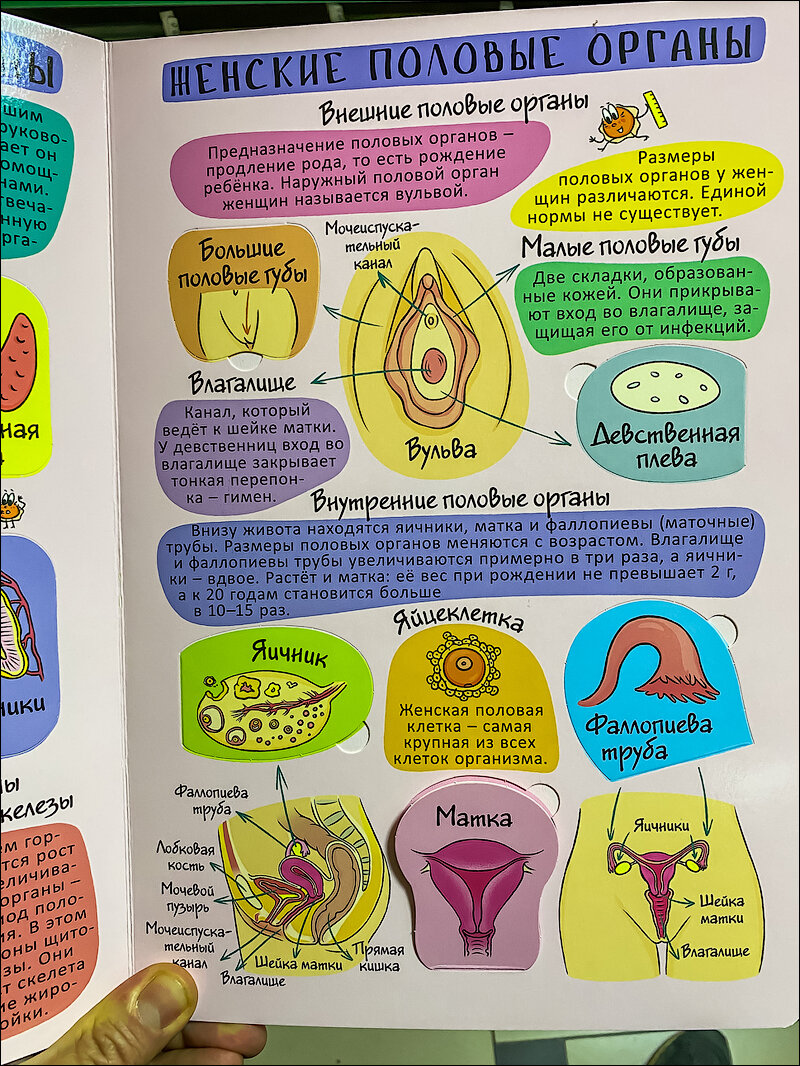 НЫ
шим
руково-
ает он
помощ-
нами.
твеча-
нную
рга-
ная
ники
ны
железы
ем гор-
тся рост
еличива-
органы –
иод поло-
ия. В этом
оны щито-
зы. Они
т скелета
ие жиро-
ойки.
ЖЕНСКИЕ ПОЛОВЫЕ ОРГАНЫ
Внешние половые органы
Предназначение половых органов –
продление рода, то есть рождение
ребёнка. Наружный половой орган
женщин называется вульвой.
Размеры
половых органов у жен-
щин различаются. Единой
нормы не существует.
Большие
половые губы
Мочеиспуска-
тельный
канал
Малые половые губы
Две складки, образован-
ные кожей. Они прикрыва-
ют вход во влагалище, за-
щищая его от инфекций.
Влагалище
Канал, который
ведёт к шейке матки.
У девственниц вход во
влагалище закрывает
тонкая перепон-
ка – гимен.
Вульва
Девственная
плева
Внутренние половые органы
Внизу живота находятся яичники, матка и фаллопиевы (маточные)
трубы. Размеры половых органов меняются с возрастом. Влагалище
и фаллопиевы трубы увеличиваются примерно в три раза, а яични-
ки – вдвое. Растёт и матка: её вес при рождении не превышает 2 г,
а к 20 годам становится больше
в 10–15 раз.
Яичник
Яйцеклетка
Женская половая
клетка – самая
крупная из всех
клеток организма.
Фаллопиева
труба
Фаллопиева
труба
Лобковая
кость
Мочевой
пузырь
Мочеиспуска-
тельный
канал
Влагалище
Шейка матки
Прямая
кишка
Матка
Яичники
Шейка
матки
Влагалище